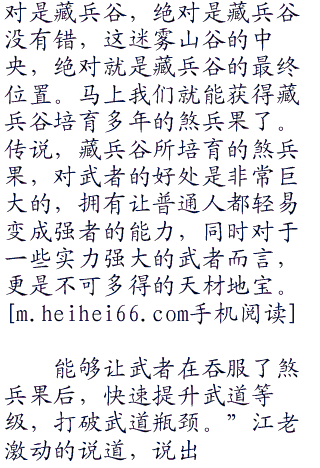 对是藏兵谷，绝对是藏兵谷
没有错，这迷雾山谷的中
央，绝对就是藏兵谷的最终
位置。马上我们就能获得藏
兵谷培育多年的煞兵果了。
传说，藏兵谷所培育的煞兵
果，对武者的好处是非常巨
大的，拥有让普通人都轻易
变成强者的能力，同时对于
一些实力强大的武者而言，
更是不可多得的天材地宝。
[m.heihei66.com手机阅读]
　　能够让武者在吞服了煞
兵果后，快速提升武道等
级，打破武道瓶颈。”江老
激动的说道，说出